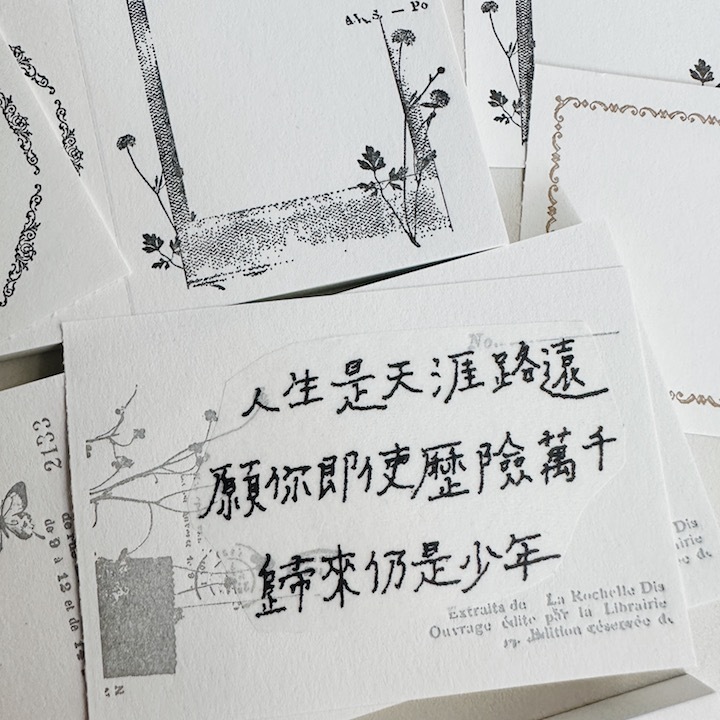 No.
人生是天涯路遠
願你即使歷險萬千
歸來仍是少年
Extraits de La Rochelle Dis
Ouvrage édité par la Librairie
Edition réservée d
2133
de 9 à 12 et de
Dis
irie
N